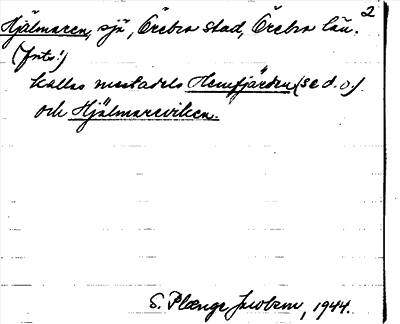 2
Hjälmaren, sjö, Örebro stad, Örebro län.
(forts.)
kallas mestadels Hemfjärden (se d.o.)
och Hjälmareviken.
S. Plænge Jacobson, 1944.